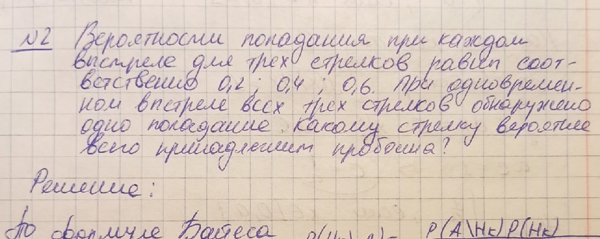 №2 Вероятности попадания при каждом
выстреле для трех стрелков равны соот-
ветственно 0,2; 0,4; 0,6. При одновремен-
ном выстреле всех трех стрелков обнаружено
одно попадание. Какому стрелку вероятнее
всего принадлежит пробоина?
Решение:
По формуле Байеса P(A\Hк)P(Hк)